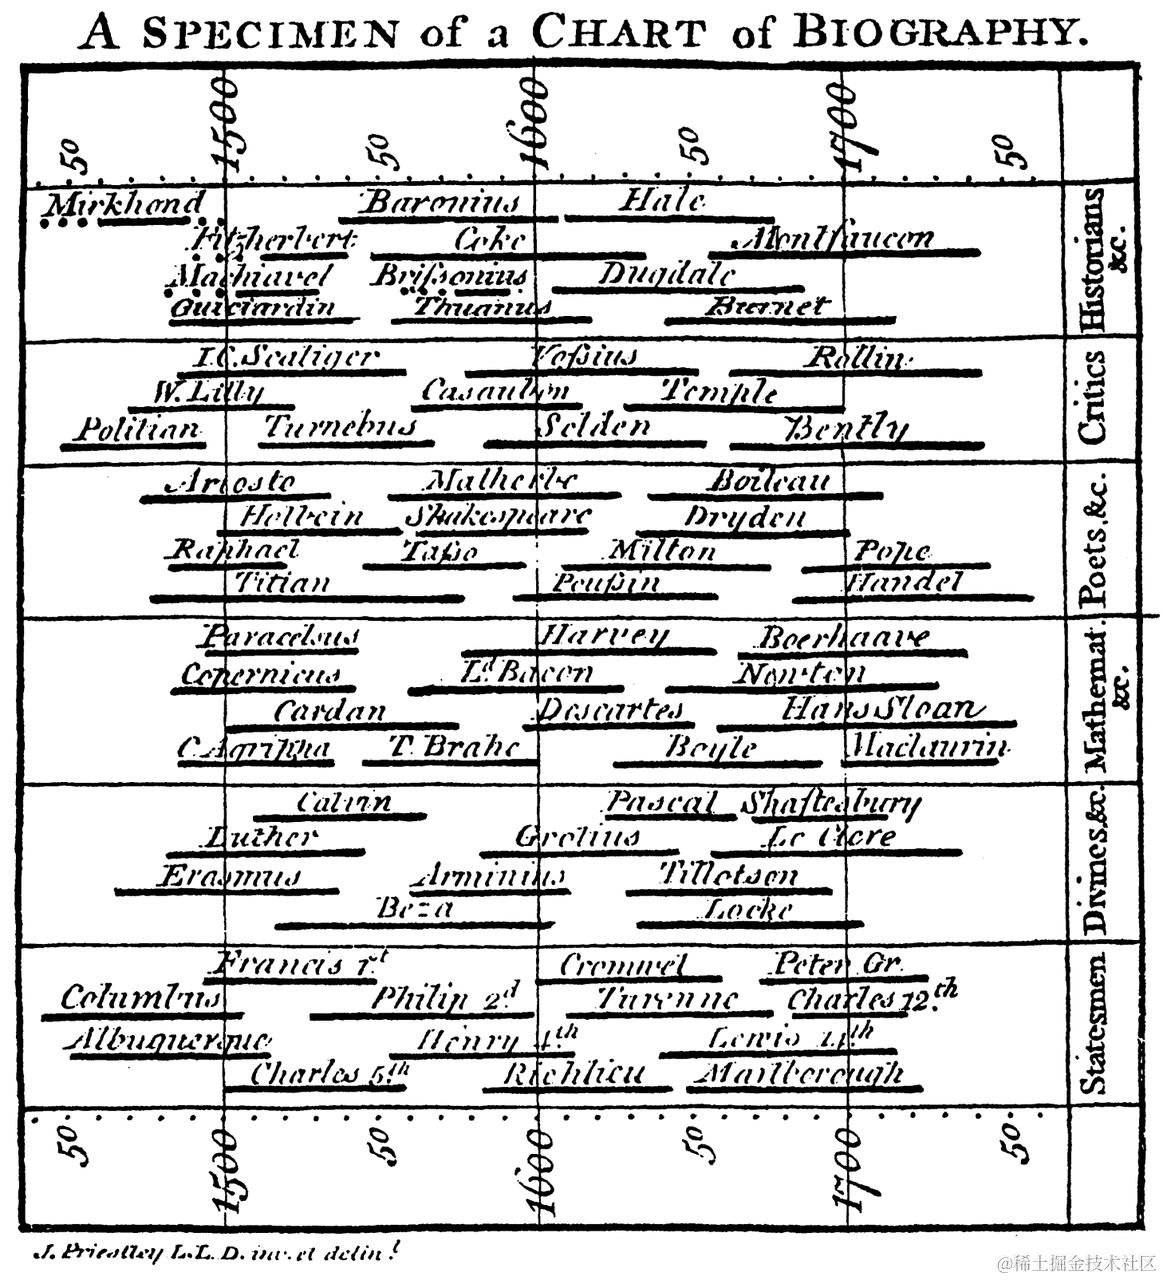 A SPECIMEN of a CHART of BIOGRAPHY.
50 1500 50 1600 50 1700 50
Mirkhond Baronius Hale
Fitzherbert Coke Montfaucon
Machiavel Brißonius Dugdale
Guiciardin Thuanus Burnet
Historians &c.
I.C. Scaliger Voßius Rollin
W. Lilly Casaubon Temple
Politian Turnebus Selden Bently
Critics
Ariosto Malherbe Boileau
Holbein Shakespeare Dryden
Raphael Taßo Milton Pope
Titian Poußin Handel
Poets, &c.
Paracelsus Harvey Boerhaave
Copernicus Ld. Bacon Newton
Cardan Descartes Hans Sloan
C. Agrippa T. Brahe Boyle Maclaurin
Mathemat. &c.
Calvin Pascal Shaftesbury
Luther Grotius Le Clerc
Erasmus Arminius Tillotson
Beza Locke
Divines &c.
Francis 1st Cromwel Peter Gr.
Columbus Philip 2d Turenne Charles 12.th
Albuquerque Henry 4th Lewis 14th
Charles 5.th Richlieu Marlborough
Statesmen
50 1500 50 1600 50 1700 50
J. Priestley L.L.D. inv. et delin.t
@稀土掘金技术社区